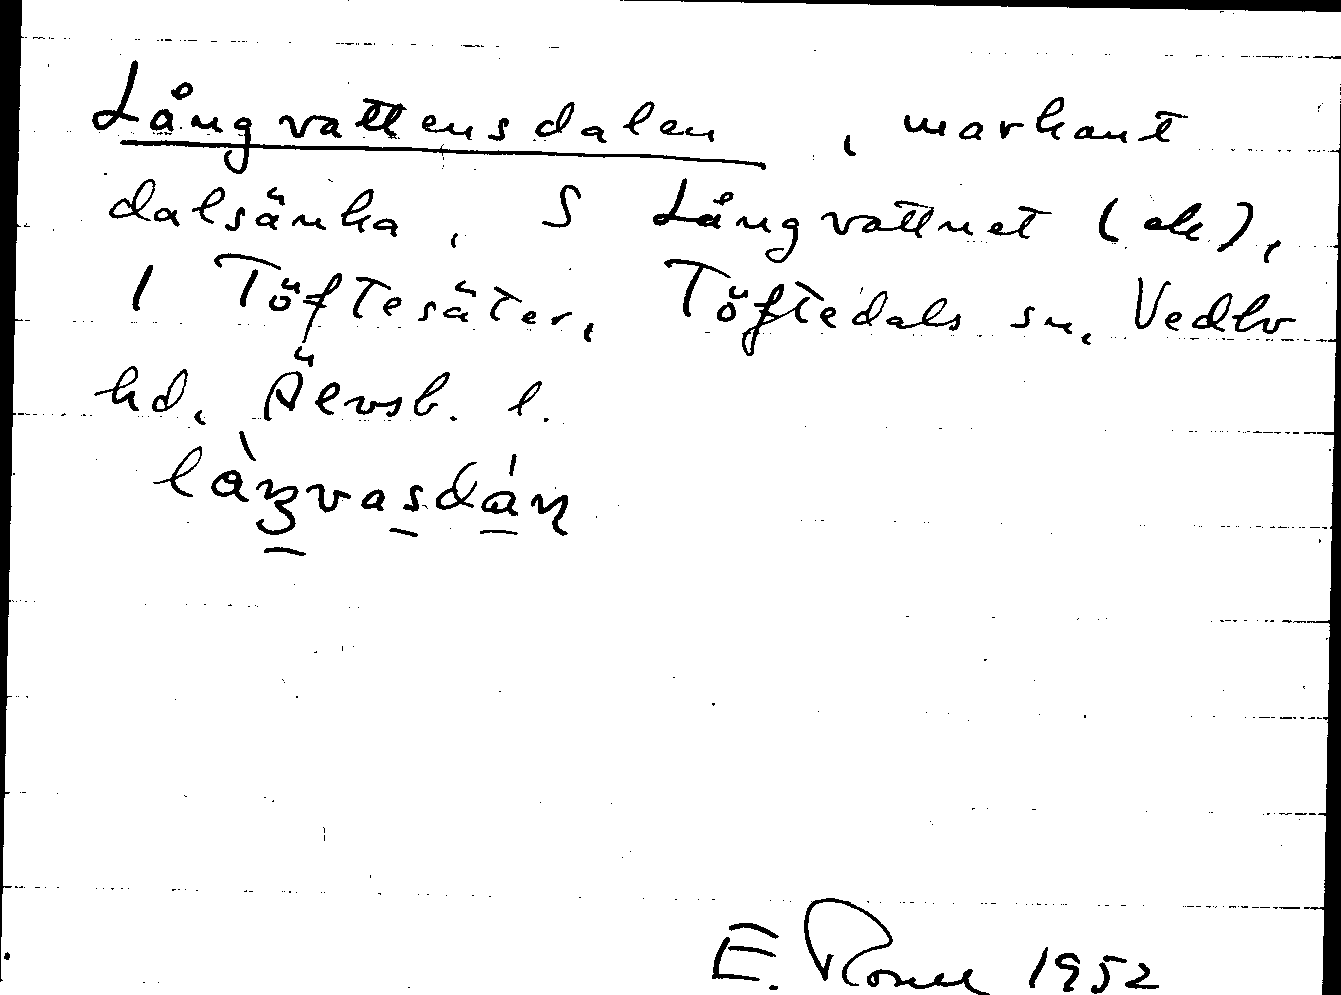 Långvattensdalen, markant
dalsänka, S Långvattnet (ek),
I Töftesäter, Töftedals sn. Vedbo
hd. Älvsb. l.
E. 1952